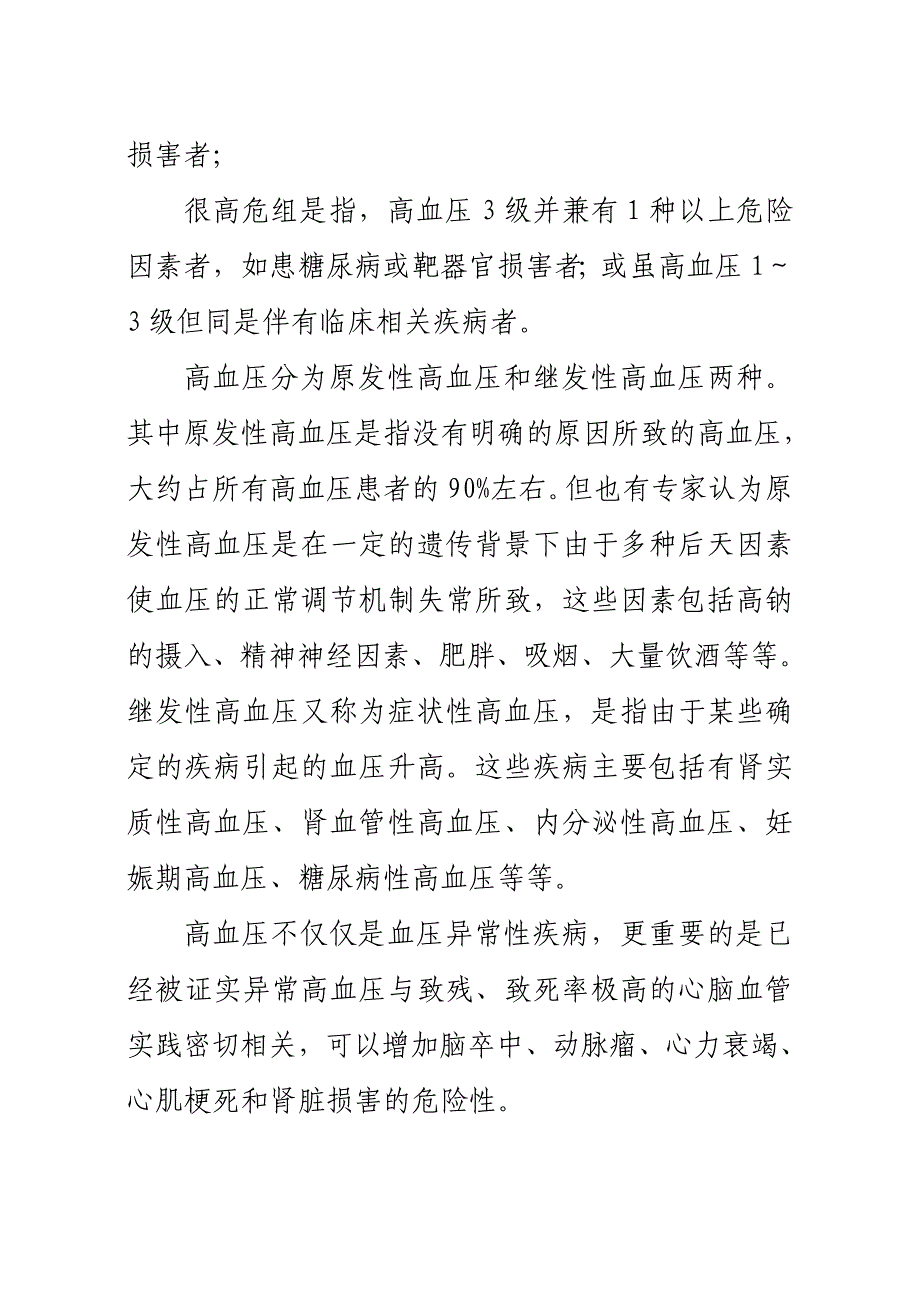 损害者；
很高危组是指，高血压 3 级并兼有 1 种以上危险
因素者，如患糖尿病或靶器官损害者；或虽高血压 1～
3 级但同是伴有临床相关疾病者。
高血压分为原发性高血压和继发性高血压两种。
其中原发性高血压是指没有明确的原因所致的高血压，
大约占所有高血压患者的 90%左右。但也有专家认为原
发性高血压是在一定的遗传背景下由于多种后天因素
使血压的正常调节机制失常所致，这些因素包括高钠
的摄入、精神神经因素、肥胖、吸烟、大量饮酒等等。
继发性高血压又称为症状性高血压，是指由于某些确
定的疾病引起的血压升高。这些疾病主要包括有肾实
质性高血压、肾血管性高血压、内分泌性高血压、妊
娠期高血压、糖尿病性高血压等等。
高血压不仅仅是血压异常性疾病，更重要的是已
经被证实异常高血压与致残、致死率极高的心脑血管
实践密切相关，可以增加脑卒中、动脉瘤、心力衰竭、
心肌梗死和肾脏损害的危险性。